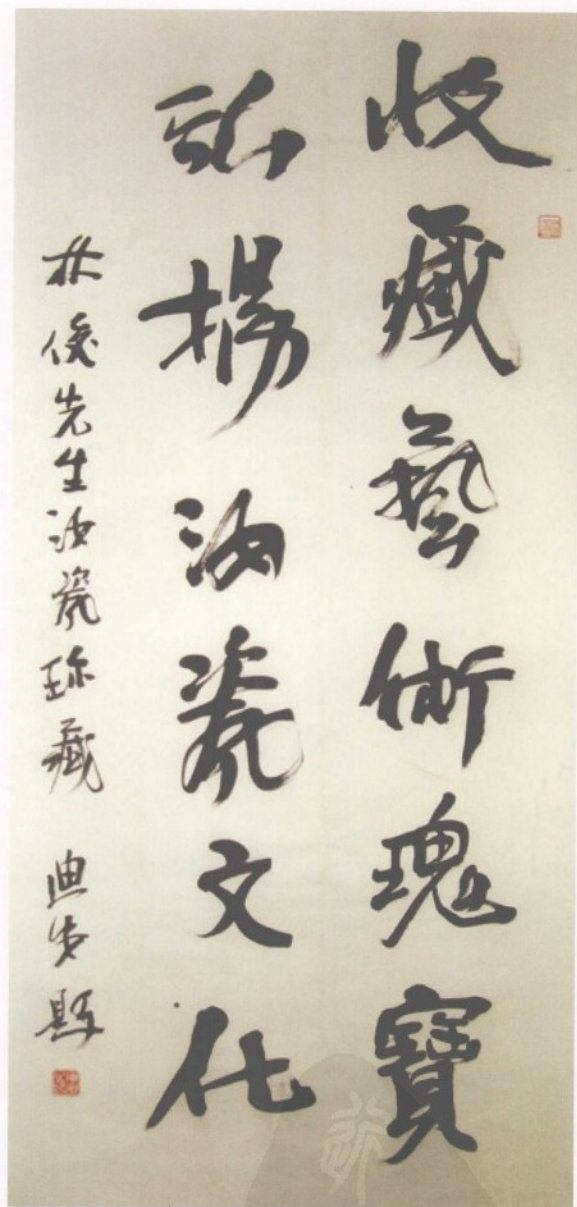 收藏藝術瑰寶
弘揚汝瓷文化
林俊先生汝瓷珍藏 迪生題